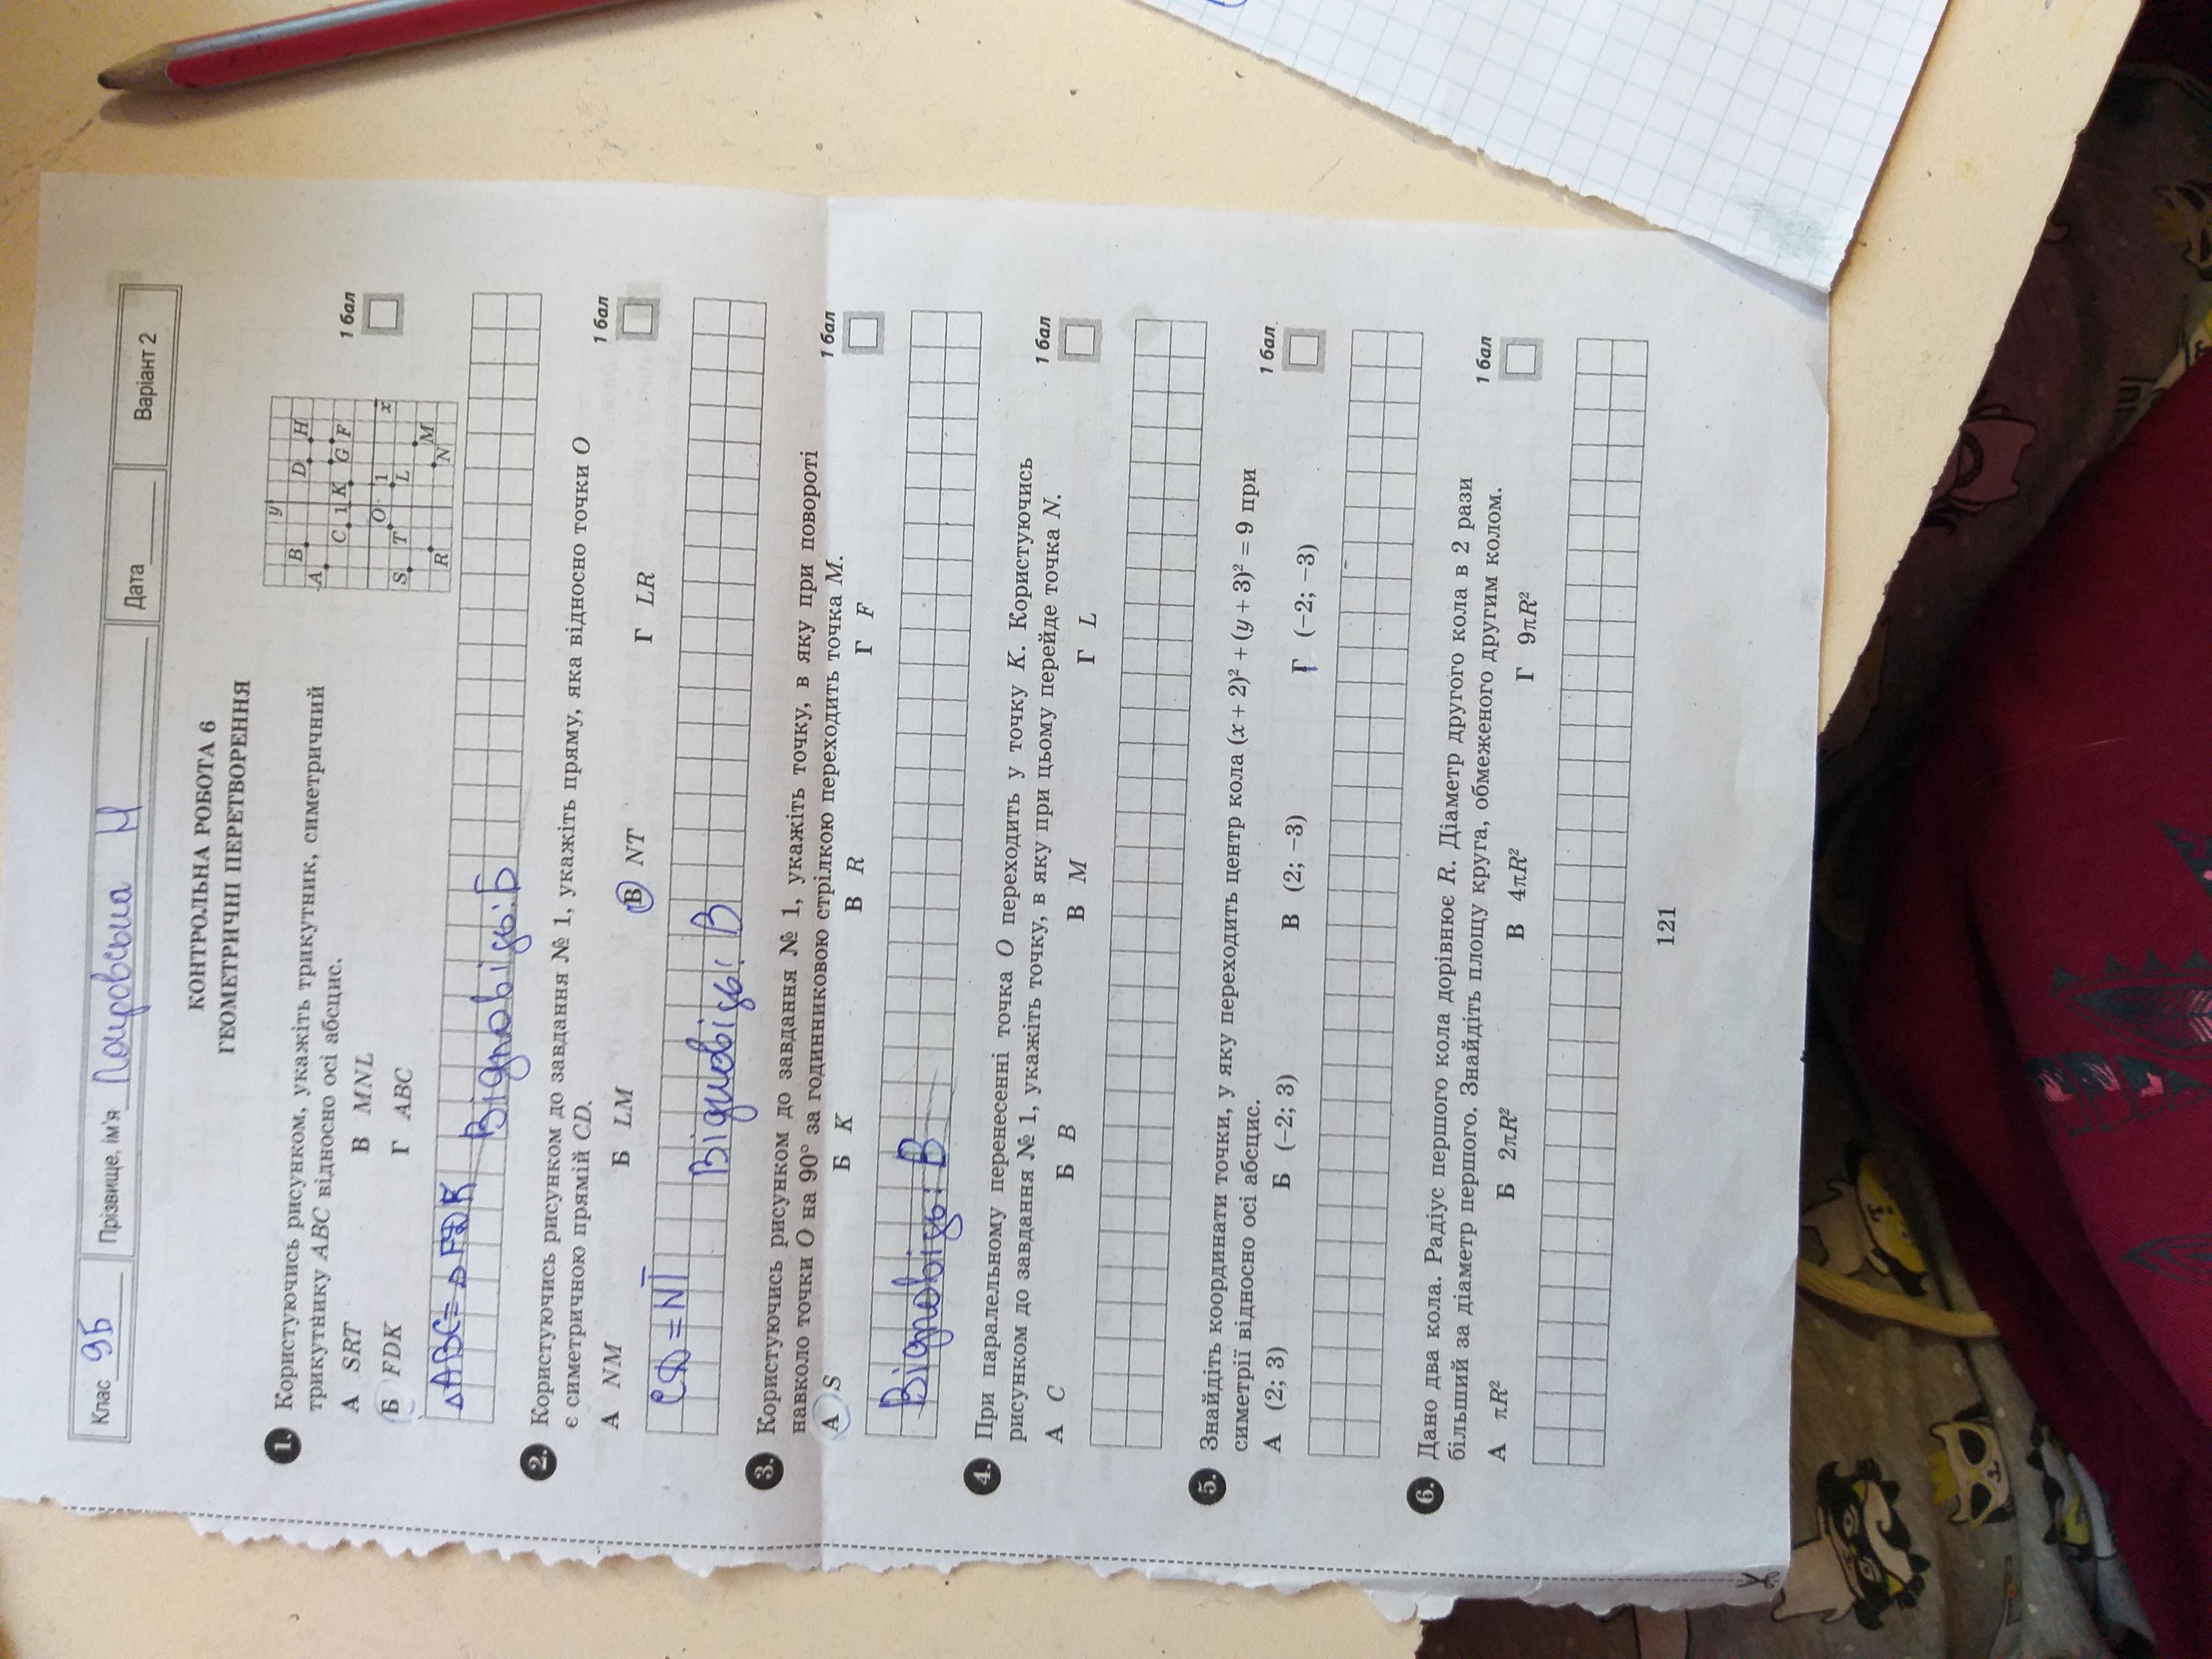 Клас 9Б Прізвище, ім'я М Дата Варіант 2
КОНТРОЛЬНА РОБОТА 6
ГЕОМЕТРИЧНІ ПЕРЕТВОРЕННЯ
1. Користуючись рисунком, укажіть трикутник, симетричний
трикутнику ABC відносно осі абсцис.
А SRT В MNL
Б FDK Г ABC
y
B D H
A
C 1 K G F
O 1 x
S T L
R N M
1 бал
△ABC=△FDK
Відповідь: Б
2. Користуючись рисунком до завдання № 1, укажіть пряму, яка відносно точки O
є симетричною прямій CD.
1 бал
А NM Б LM В NT Г LR
CD=NT
Відповідь: В
3. Користуючись рисунком до завдання № 1, укажіть точку, в яку при повороті
навколо точки O на 90° за годинниковою стрілкою переходить точка M.
1 бал
А S Б K В R Г F
Відповідь: В
4. При паралельному перенесенні точка O переходить у точку K. Користуючись
рисунком до завдання № 1, укажіть точку, в яку при цьому перейде точка N.
1 бал
А C Б B В M Г L
5. Знайдіть координати точки, у яку переходить центр кола (x + 2)² + (y + 3)² = 9 при
симетрії відносно осі абсцис.
1 бал
А (2; 3) Б (−2; 3) В (2; −3) Г (−2; −3)
6. Дано два кола. Радіус першого кола дорівнює R. Діаметр другого кола в 2 рази
більший за діаметр першого. Знайдіть площу круга, обмеженого другим колом.
1 бал
А πR² Б 2πR² В 4πR² Г 9πR²
121